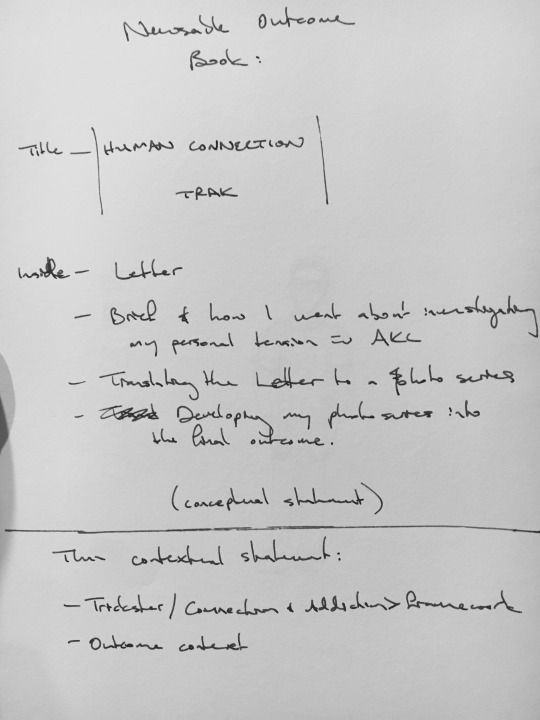 Newsable Outcome
Book:
Title — HUMAN CONNECTION
TRAK
Inside — Letter
— Brief & how I went about investigating
my personal tension => AKC
— Translating the Letter to a photo series
— Developing my photo series into
the final outcome.
(conceptual statement)
contextual statement:
— Trickster / Connection & Addiction > Framework
— Outcome context